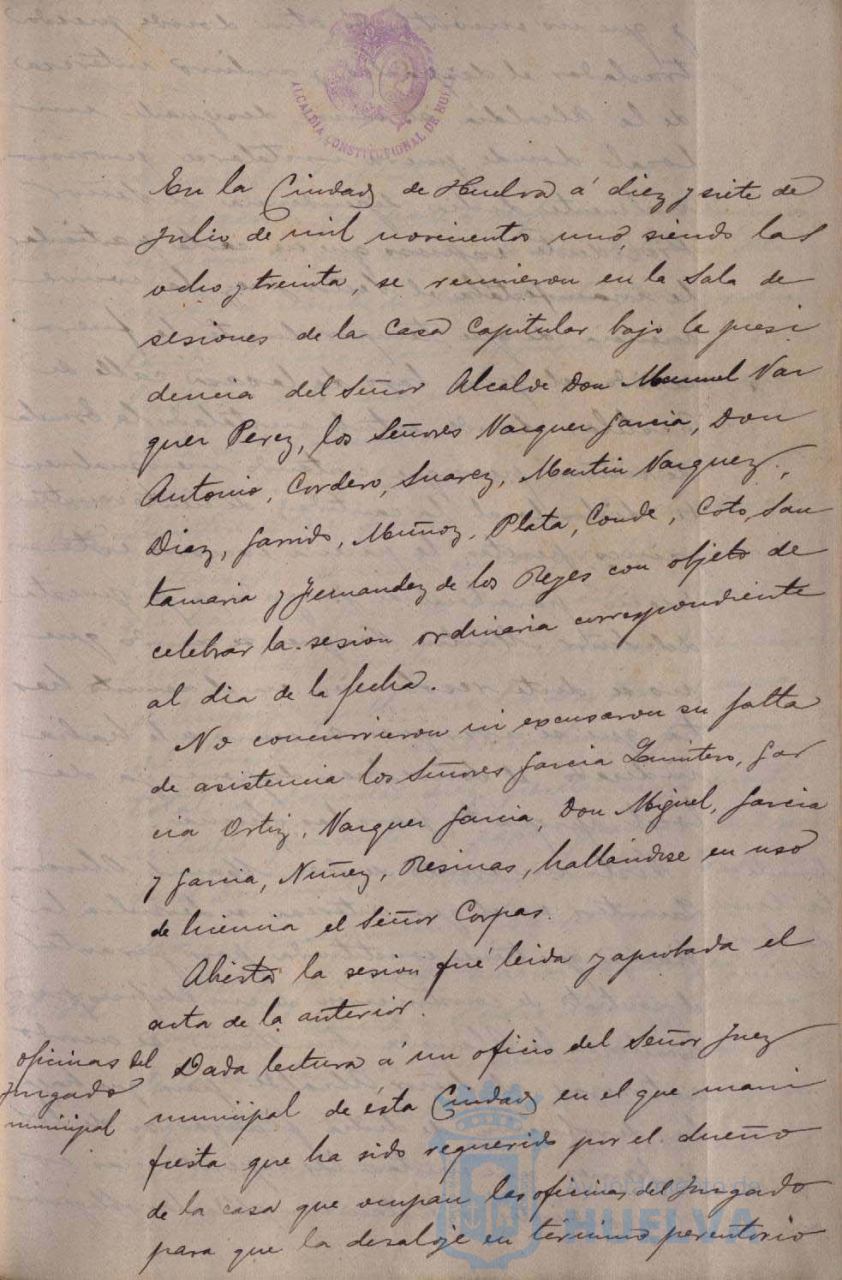 ALCALDÍA CONSTITUCIONAL DE HUELVA
En la Ciudad de Huelva á diez y siete de
Julio de mil novecientos uno, siendo las
ocho y treinta, se reunieron en la Sala de
sesiones de la Casa Capitular bajo la presi
dencia del Señor Alcalde Don Manuel Vaz
quez Perez, los Señores Vazquez Garcia, Don
Antonio, Cordero, Suarez, Martin Vazquez,
Diaz, Garrido, Muñoz, Plata, Conde, Coto, San
tamaria y Fernandez de los Reyes con objeto de
celebrar la sesion ordinaria correspondiente
al dia de la fecha.
No concurrieron ni excusaron su falta
de asistencia los Señores Garcia Quintero, Gar
cia Ortiz, Vazquez Garcia, Don Miguel, Garcia
y Garcia, Nuñez, Resinas, hallándose en uso
de licencia el Señor Corpas.
Abierta la sesion fué leida y aprobada el
acta de la anterior.
oficinas del
Juzgado
municipal
Dada lectura á un oficio del Señor Juez
municipal de ésta Ciudad en el que mani
fiesta que ha sido requerido por el dueño
de la casa que ocupan las oficinas del Juzgado
para que la desaloje en término perentorio
Ayuntamiento de
HUELVA